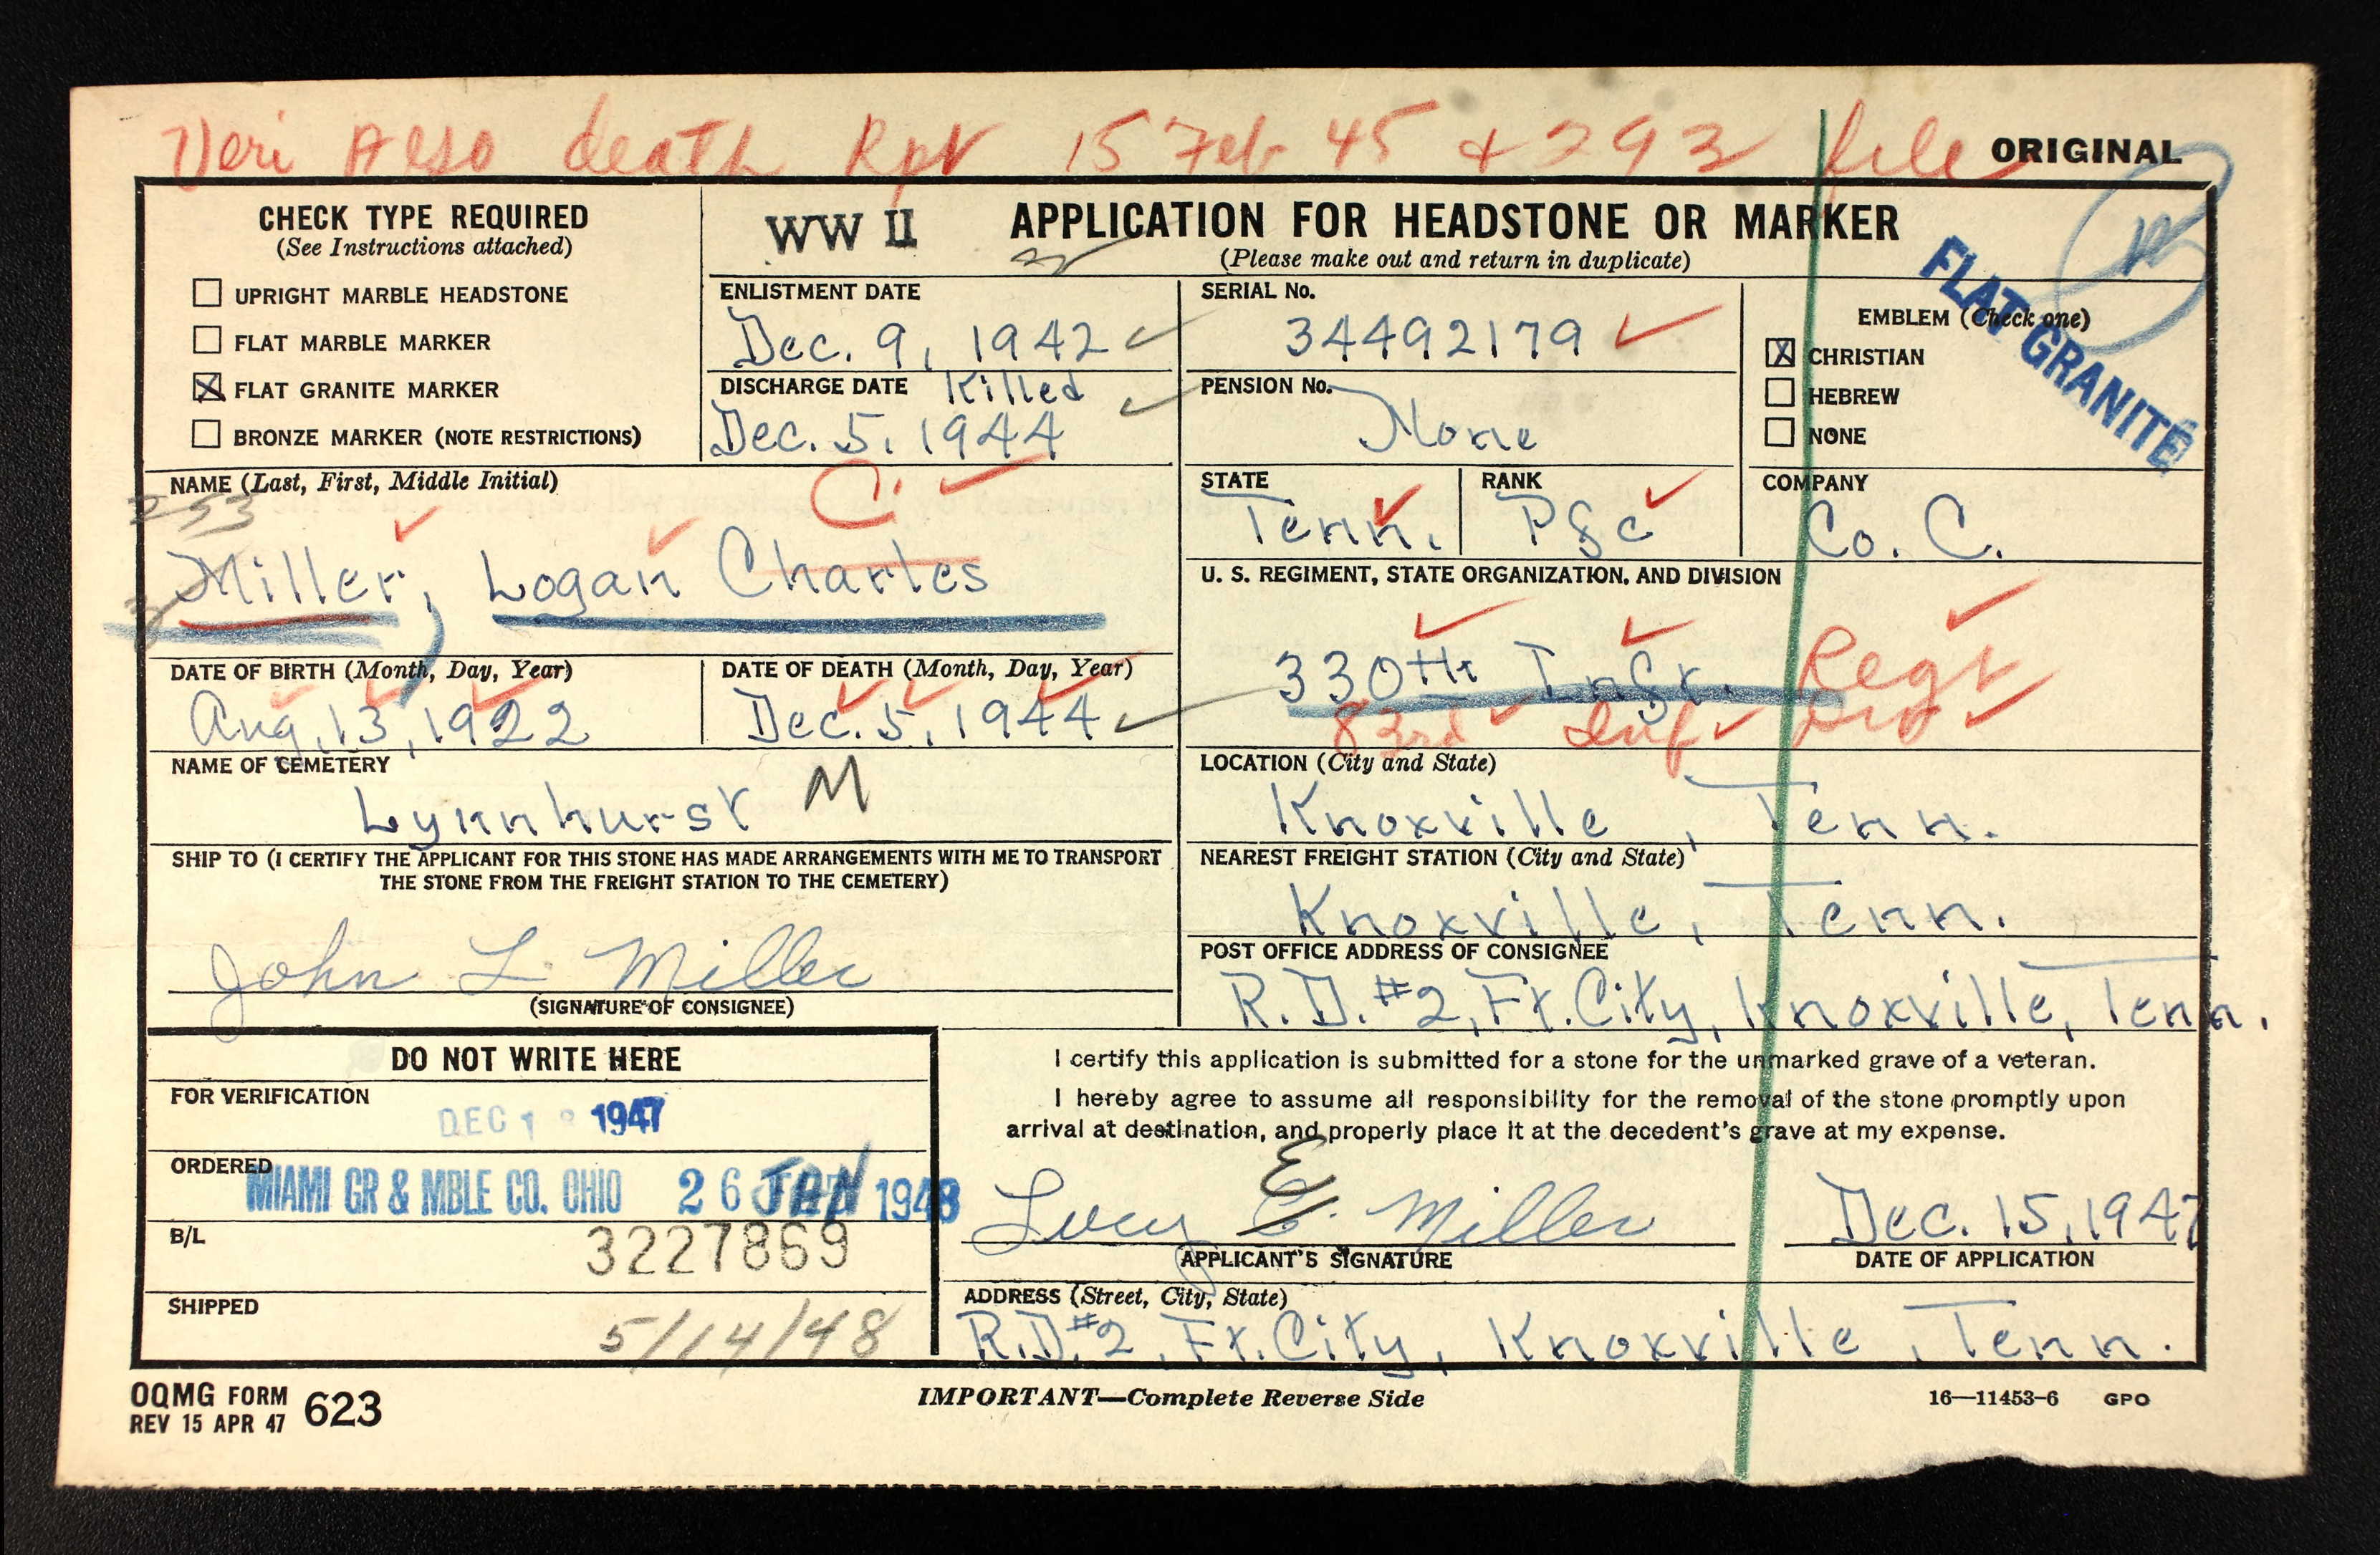 Veri Also death Rpt 15 Feb 45 & 293 file
ORIGINAL
CHECK TYPE REQUIRED
(See Instructions attached)
UPRIGHT MARBLE HEADSTONE
FLAT MARBLE MARKER
FLAT GRANITE MARKER
BRONZE MARKER (NOTE RESTRICTIONS)
WW II
APPLICATION FOR HEADSTONE OR MARKER
(Please make out and return in duplicate)
ENLISTMENT DATE
Dec. 9, 1942
DISCHARGE DATE Killed
Dec. 5, 1944
SERIAL No.
34492179
PENSION No.
None
EMBLEM (Check one)
CHRISTIAN
HEBREW
NONE
FLAT GRANITE
NAME (Last, First, Middle Initial)
253
C.
Miller, Logan Charles
STATE
Tenn.
RANK
Pfc
COMPANY
Co. C.
U. S. REGIMENT, STATE ORGANIZATION, AND DIVISION
330th Infr. Regt
83rd Inf Div
DATE OF BIRTH (Month, Day, Year)
Aug, 13, 1922
DATE OF DEATH (Month, Day, Year)
Dec. 5, 1944
NAME OF CEMETERY
Lynnhurst M
LOCATION (City and State)
Knoxville, Tenn.
SHIP TO (I CERTIFY THE APPLICANT FOR THIS STONE HAS MADE ARRANGEMENTS WITH ME TO TRANSPORT
THE STONE FROM THE FREIGHT STATION TO THE CEMETERY)
John L. Miller
(SIGNATURE OF CONSIGNEE)
NEAREST FREIGHT STATION (City and State)
Knoxville, Tenn.
POST OFFICE ADDRESS OF CONSIGNEE
R.D. #2, Ft. City, Knoxville, Tenn.
DO NOT WRITE HERE
FOR VERIFICATION
DEC 1 1947
ORDERED
MIAMI GR & MBLE CO. OHIO 26 JAN 1948
B/L
3227869
SHIPPED
5/14/48
I certify this application is submitted for a stone for the unmarked grave of a veteran.
I hereby agree to assume all responsibility for the removal of the stone promptly upon
arrival at destination, and properly place it at the decedent's grave at my expense.
Lucy E. Miller
APPLICANT'S SIGNATURE
Dec. 15, 1947
DATE OF APPLICATION
ADDRESS (Street, City, State)
R.D. #2, Ft. City, Knoxville, Tenn.
OQMG FORM 623
REV 15 APR 47
IMPORTANT—Complete Reverse Side
16—11453-6 GPO